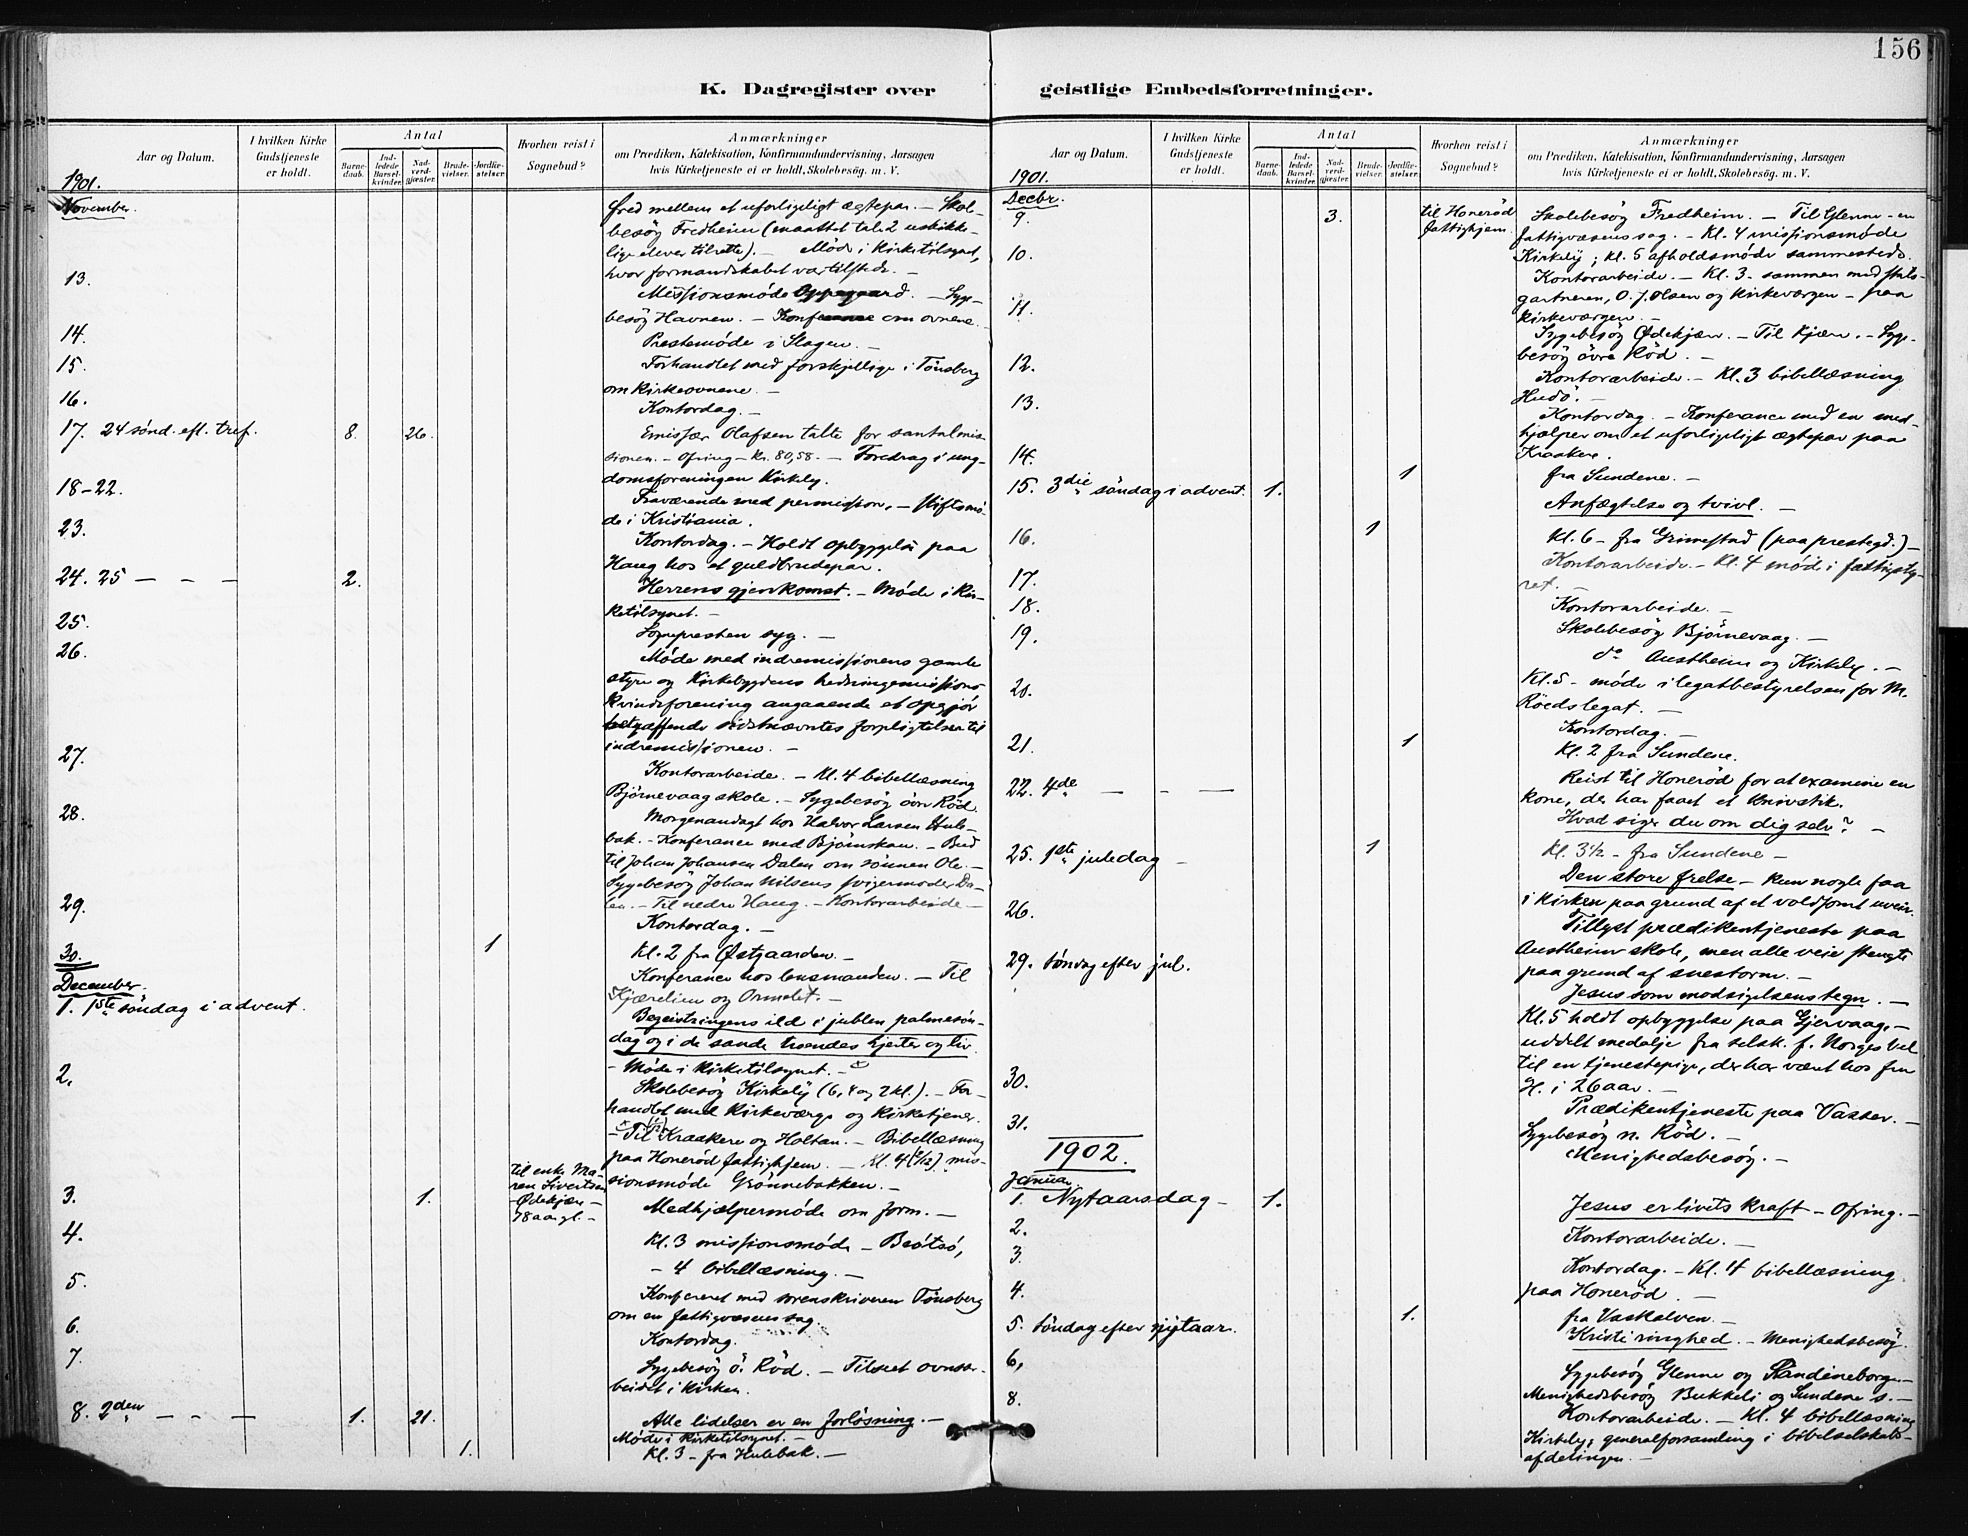 156
K. Dagregister over
Aar og Datum.
I hvilken Kirke Gudstjeneste er holdt.
Antal
Barne-daab.
Ind-ledede Barsel-kvinder.
Nad-verd-gjæster.
Brude-vielser.
Jordfæ-stelser.
Hvorhen reist i Sognebud?
Anmærkninger
om Prædiken, Katekisation, Konfirmandundervisning, Aarsagen
hvis Kirketjeneste ei er holdt, Skolebesøg. m. V.
1901.
November.
fred mellem et uforligeligt ægtepar. – Skol-
besøg Fredheim (maattet tale 2 uskikke-
lige elever tilrette). – Møde i Kirketilsynet,
hvor formandskabet var tilstede. –
13.
Missionsmøde Oppegaard. – Syge-
besøg Havnen. – Konferance om ovnene.
14.
Prestemøde i Slagen. –
15.
Forhandlet med forskjellige i Tönsberg
om kirkeovnene. –
16.
Kontordag. –
17. 24 sönd. eft. tref. 8. 26.
Emissær Olafsen talte for santalmis-
sionen. – Ofring – kr. 80,58. – Foredrag i ung-
domsforeningen Kirkely.
18–22.
Fraværende med permission. – Stiftsmö-
de i Kristiania.
23.
Kontordag. – Holdt opbyggelse paa
Haug hos et guldbrudepar.
24. 25 – – – 2.
Herrens gjenkomst. – Møde i Kir-
ketilsynet. –
25.
Sognepresten syg. –
26.
Møde med indremissionens gamle
styre og Kirkebygdens hedningemissions-
kvindeforening angaaende et opgjör
betræffende sidstnævntes forpligtelser til
indremissionen. –
27.
Kontorarbeide. – Kl. 4 bibellæsning
Bjørnevaag skole. – Sygebesög övre Röd.
28.
Morgenandagt hos Halvor Larsen Hule-
bak. – Konferance med Bjørnskau. – Bud
til Johan Johansen Dalen om sønnen Ole. –
Sygebesög Johan Nilsens svigermoder Da-
len. – Til nedre Haug. – Kontorarbeide –
29.
Kontordag. –
30. 1
Kl. 2 fra Østgaarden. –
Konferance hos lensmanden. – Til
Kjærelien og Ormelet. –
December.
1. 1ste söndag i advent.
Begeistringens ild i jublen palmesøn-
dag og i de sande troendes hjerter og liv.
– Møde i kirketilsynet. –
2.
Skolebesøg Kirkely (6, 4 og 2 kl.). – For-
handlet med kirkeværge og kirketjener.
– Til Kraakere og Holtan. – Bibellæsning
paa Honerød fattighjem. – Kl. 4 (3/12) mis-
sionsmøde Grönnebakken. –
3. 1.
til enke Ma-
ren Sivertsen
Ødekjær –
78 aar gl. –
Medhjælpermøde om form. –
4.
Kl. 3 missionsmøde – Bröteö,
– 4 bibellæsning. –
5.
Konfereret med sorenskriveren Tönsberg
om en fattigvæsenssag.
6.
Kontordag.
7.
Sygebesög ö. Röd. – Tilseet ovnsar-
beidet i kirken.
8. 2den – – – 1. 21.
Alle lidelser er en forlösning. –
Møde i kirketilsynet. –
1.
Kl. 3 – fra Hulebak. –
geistlige Embedsforretninger.
Aar og Datum.
I hvilken Kirke Gudstjeneste er holdt.
Antal
Barne-daab.
Ind-ledede Barsel-kvinder.
Nad-verd-gjæster.
Brude-vielser.
Jordfæ-stelser.
Hvorhen reist i Sognebud?
Anmærkninger
om Prædiken, Katekisation, Konfirmandundervisning, Aarsagen
hvis Kirketjeneste ei er holdt, Skolebesøg. m. V.
1901.
Decbr.
9. 3.
til Honeröd
fattighjem.
Skolebesög Fredheim. – Til Glenne – en
fattigvæsenssag. – Kl. 4 missionsmøde
Kirkely; kl. 5 afholdsmøde sammesteds.
10.
Kontorarbeide. – Kl. 3 – sammen med slots-
gartneren, O. J. Olsen og kirkeværgen – paa
kirkeværgen. –
11.
Sygebesög Ødekjær. – Til Kjær. – Syge-
besög övre Röd. –
12.
Kontorarbeide. – Kl. 3 bibellæsning
Hudö. –
13.
Kontordag. – Konferance med en med-
hjælper om et uforligeligt ægtepar paa
Kraakere.
14. 1
fra Sundene. –
15. 3die söndag i advent. 1.
Anfægtelse og tvivl. –
1
Kl. 6 – fra Grimestad (paa prestegd.) –
16.
Kontorarbeide. – Kl. 4 møde i fattigsty-
ret. –
17.
Kontorarbeide. –
18.
Skolebesög Björnevaag. –
19.
do Austheim og Kirkely. –
Kl. 5 – møde i legatbestyrelsen for M.
Röeds legat. –
20.
Kontordag. –
21. 1
Kl. 2 fra Sundene.
Reist til Honeröd for at examine en
kone, der har faaet et knivstik.
22. 4de – – –
Hvad siger du om dig selv? –
1
Kl. 3 1/2 – fra Sundene –
25. 1ste juledag –
Den store frelse – kun nogle faa
i kirken paa grund af et voldsomt uveir.
26.
Tillyst prædikentjeneste paa
Austheim skole, men alle veie stengte
paa grund af snestorm. –
29. söndag efter jul.
Jesus som modsigelsens tegn. –
Kl. 5 holdt opbyggelse paa Gjervaag. –
uddelt medalje fra selsk. f. Norges vel
til en tjenestepige, der har været hos fru
H. i 26 aar. –
30.
Prædikentjeneste paa Vasser. –
Sygebesög n. Röd. –
31.
Menighedsbesög. –
1902.
Januar
1. Nytaarsdag – 1.
Jesus er livets kraft – Ofring. –
2.
Kontorarbeide. –
3.
Kontordag. – Kl. 4 bibellæsning
paa Honerød. –
4. 1.
fra Vaskalven. –
5. söndag efter nytaar.
Kristi ringhed. – Menighedsbesög.
6.
Sygebesög Glenne og Skandineborg. –
Menighedsbesög Bukkeli og Sundene s. –
8.
Kontorarbeide. – Kl. 4 bibellæsning
Kirkely; generalforsamling i bibelselskabs-
afdelingen. –